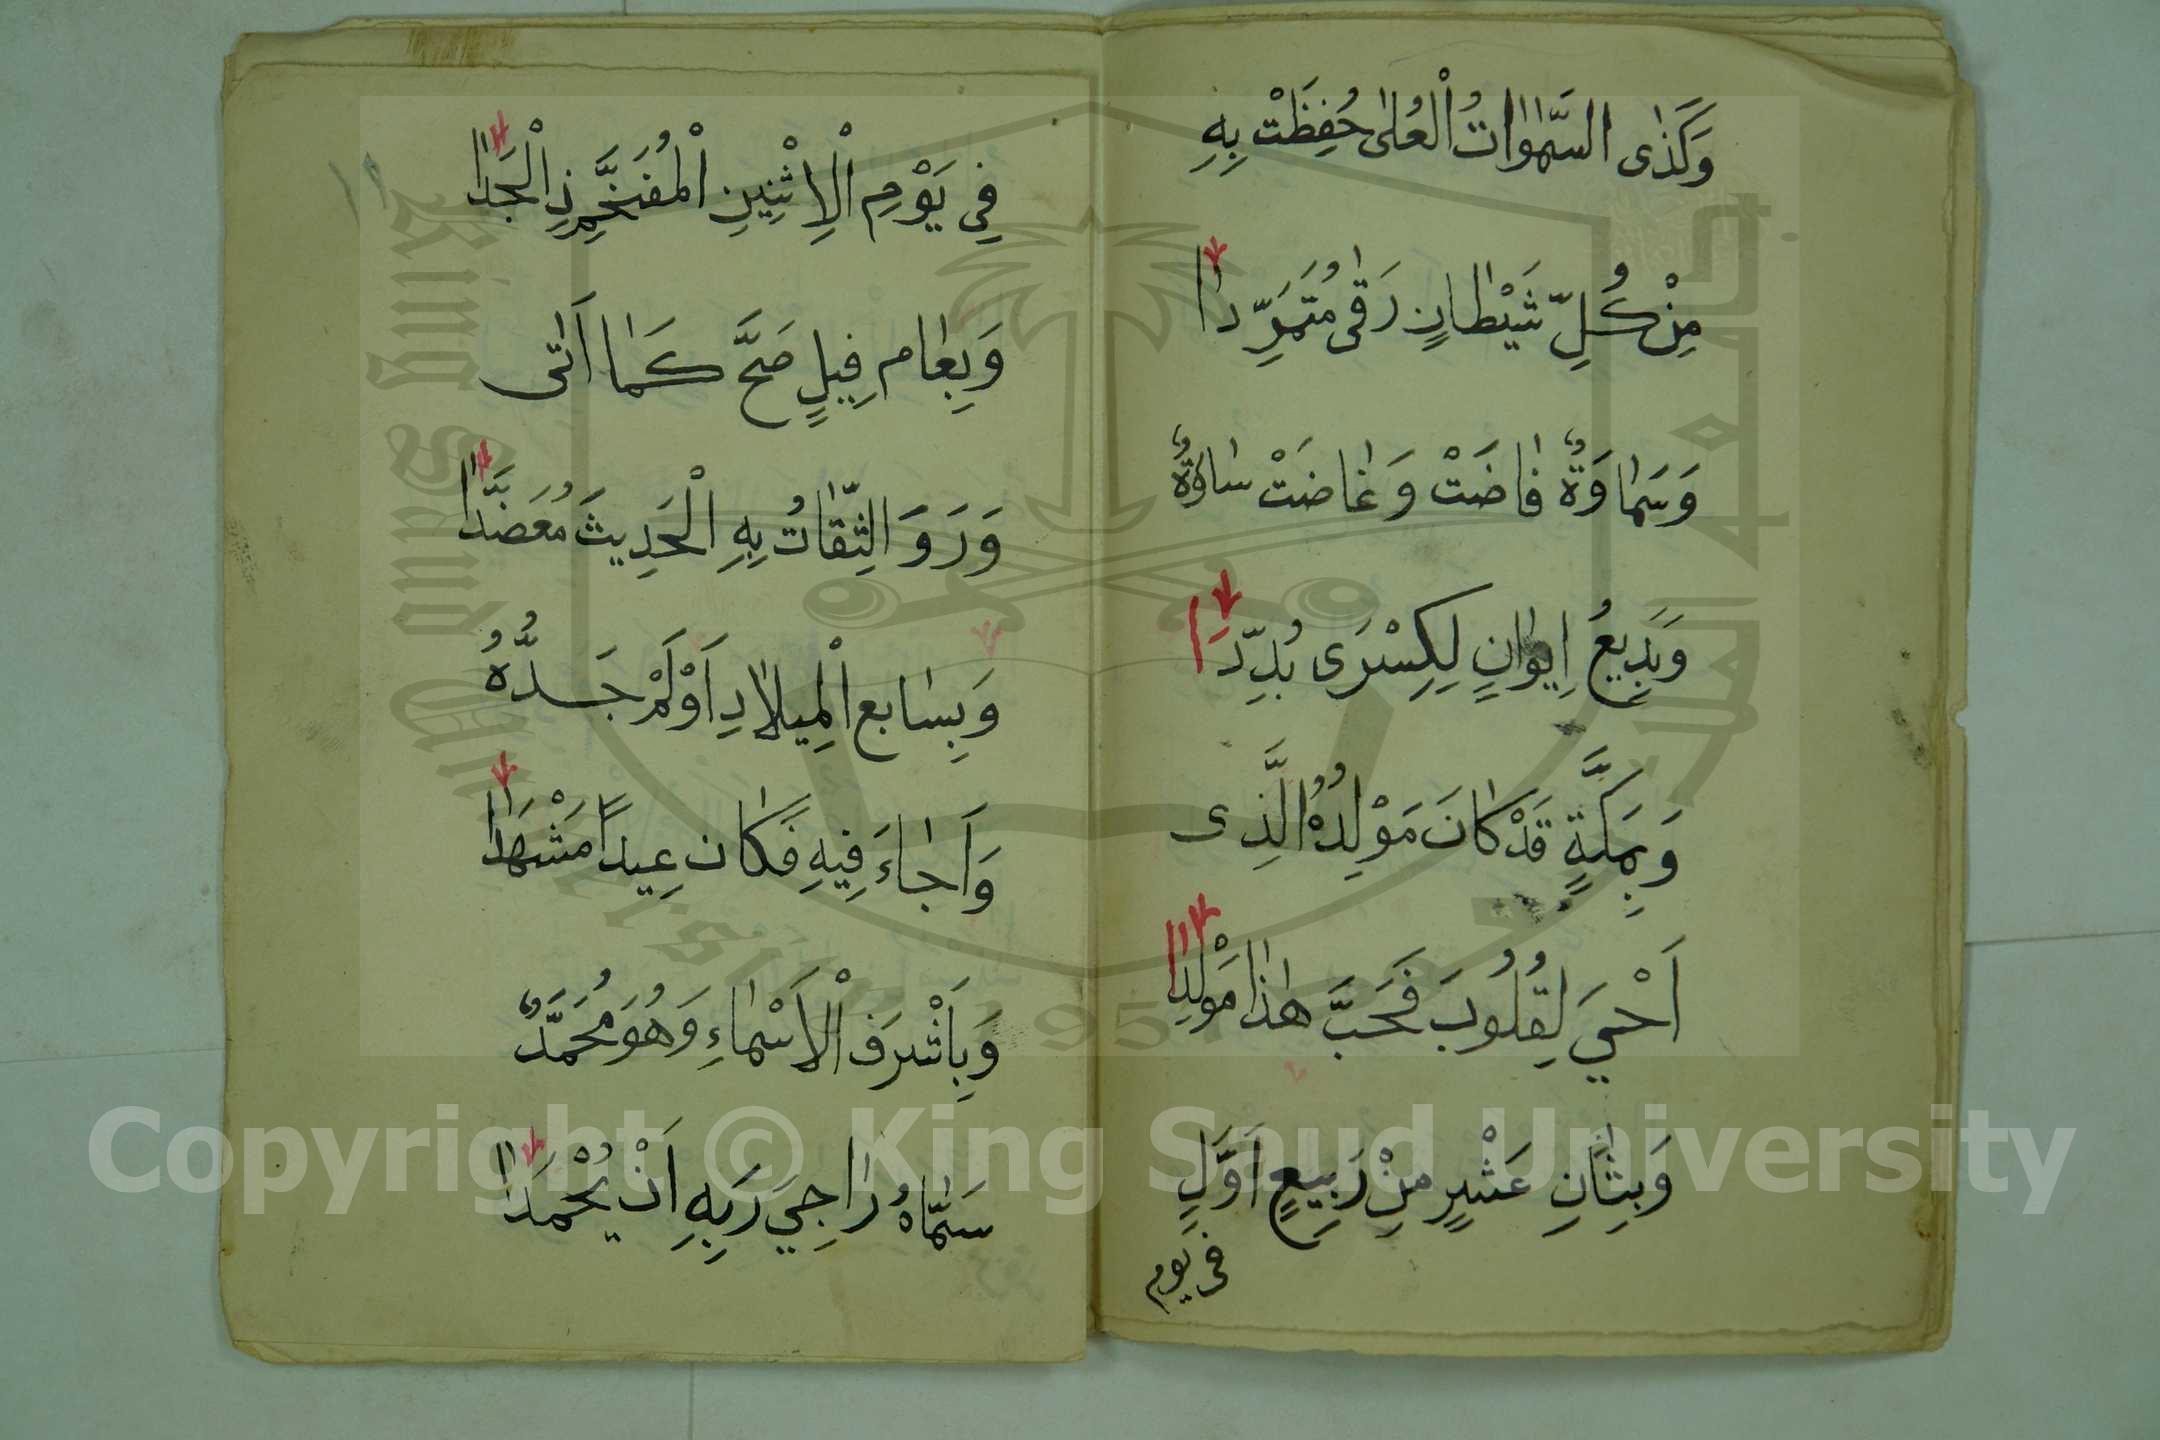 وَكَذٰى السَّمٰوَاتُ الْعُلٰى حُفِظَتْ بِهِ
مِنْ كُلِّ شَيْطَانٍ رَقٰى مُتَمَرِّدًا
وَسَمَاوَةٌ فَاضَتْ وَغَاضَتْ سَاوَةٌ
وَبَدِيعُ اِيوَانٍ لِكِسْرَى بُدِّدَا
وَبِمَكَّةٍ قَدْ كَانَ مَوْلِدُهُ الَّذِى
اَحْيَ لِقُلُوبَ فَحَبَّ هٰذَا مَوْلِدَا
وَبِثَانِ عَشْرٍ مِنْ رَبِيعٍ اَوَّلٍ
فى يوم
فِي يَوْمِ الْاِثْنِينِ الْمُفَخَّمِ ذِ الْجَدَا
وَبِعَامِ فِيلٍ صَحَّ كَمَا اَتٰى
وَرَوَ الثِّقَاتُ بِهِ الْحَدِيثَ مُعَضَّدَا
وَبِسَابِعِ الْمِيلَادِ اَوْلَمْ جَدُّهُ
وَاَجَاءَ فِيهِ فَكَانَ عِيدًا مَشْهَدَا
وَبِاَشْرَفِ الْاَسْمَاءِ وَهُوَ مُحَمَّدٌ
سَمَّاهُ رَاجِيَ رَبِهِ اَنْ يُحْمَدَا
Copyright © King Saud University
King Saud University
1957